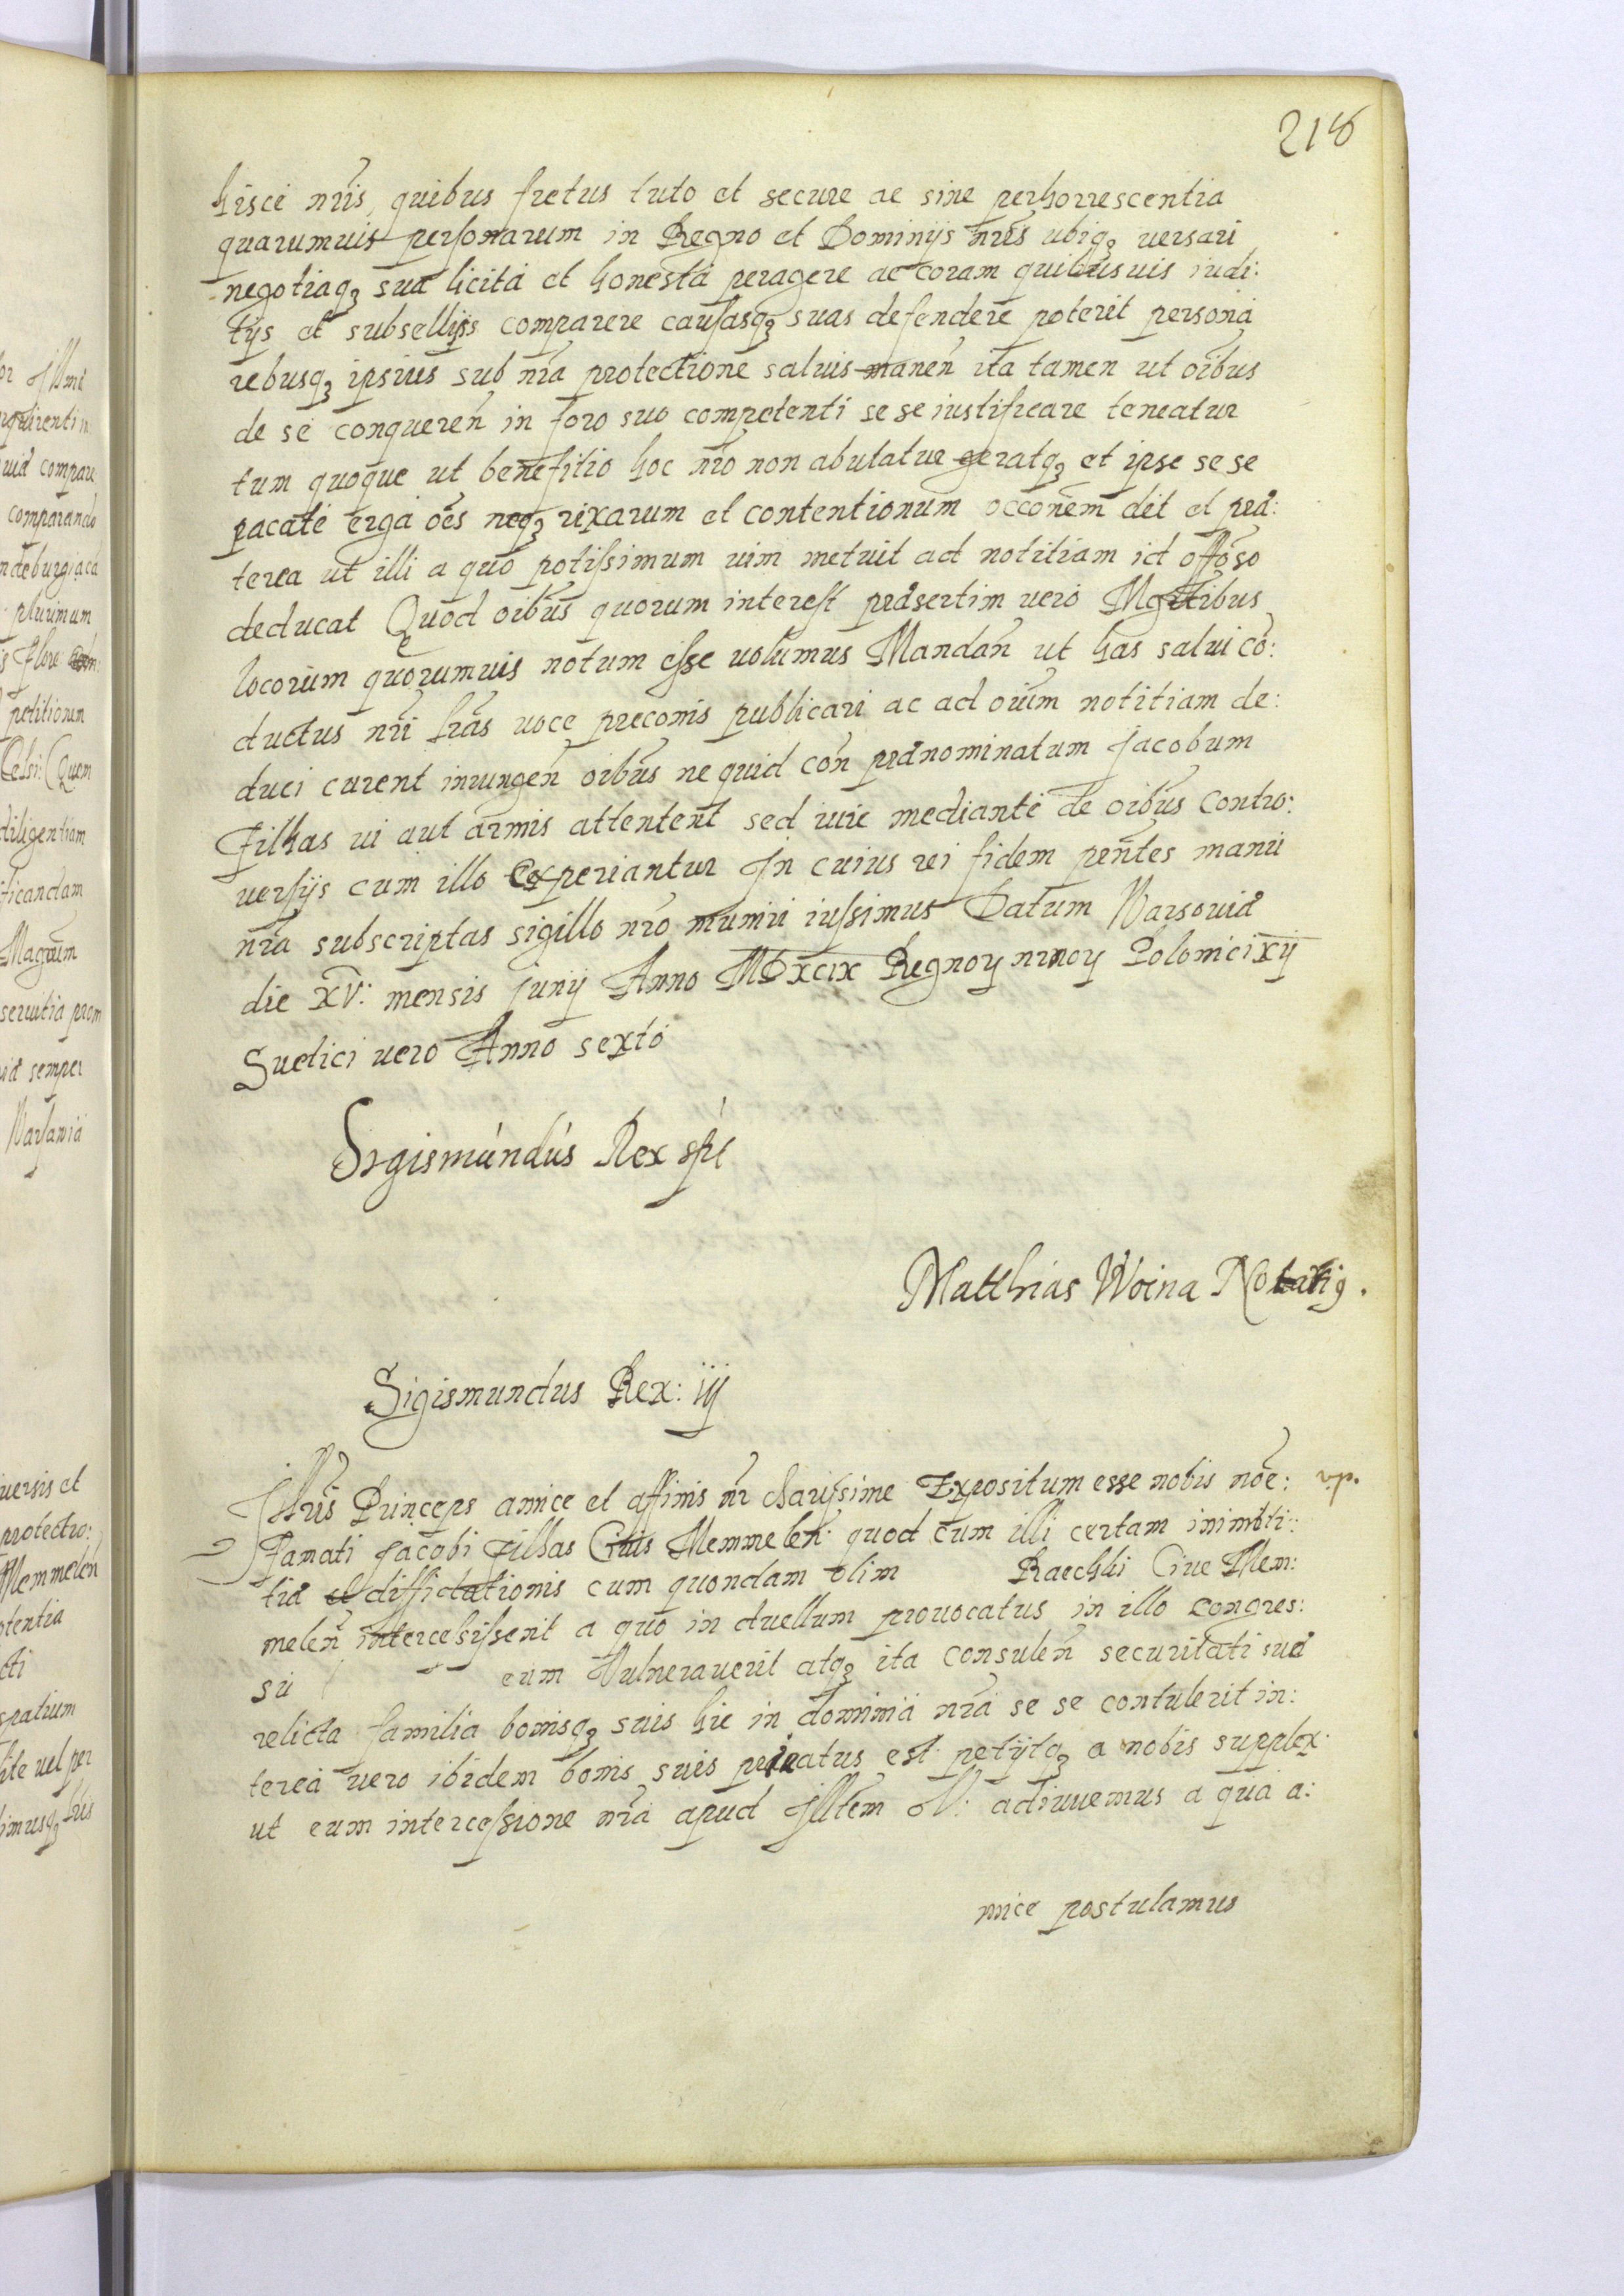 218
hisce nr̄is, quibus fretus tuto et secure ac sine perhorrescentia
quarumuis personarum in Regno et Dominijs nr̄is ubiqꝫ uersari
negotiaqꝫ sua licita et honesta peragere ac coram quibusuis iudi:
tijs et subsellijs comparere causasqꝫ suas defendere poterit persona
rebusqꝫ ipsius sub nr̄a protectione saluis manen̄ ita tamen ut oībus
de se conqueren̄ in foro suo competenti se se iustificare teneatur
tum quoque ut benefitio hoc nr̄o non abutatur geratqꝫ et ipse se se
pacate erga oēs neqꝫ rixarum et contentionum occōnem det et præ:
terea ut illi a quo potissimum uim metuit ad notitiam id offōso
deducat Quod oībus quorum interest præsertim uero Mgr̄tibus
locorum quorumuis notum esse uolumus Mandan̄ ut has salui cō:
ductus nr̄i lr̄as uoce preconis publicari ac ad oīum notitiam de:
duci curent iniungen̄ oībus ne quid con̄ prænominatum Jacobum
Filhas ui aut armis attentent sed iure mediante de oībus contro:
uersijs cum illo experiantur Jn cuius rei fidem pn̄tes manu
nr̄a subscriptas sigillo nr̄o muniri iussimus Datum Varsouiæ
die XV: mensis Junij Anno MDXCIX Regnoꝝ nr̄noꝝ Polonici xij
Suetici uero Anno sexto
Sigismundus Rex sſt
Matthias Woina Notariꝯ.
Sigismundus Rex: iij
Jllr̄is Princeps amice et affinis nr̄ charissime Expositum esse nobis nōe: v.p.
Famati Jacobi Filhas Ciuis Memmelen̄ quod cum illi certam inimiti:
tiæ et diffidationis cum quondam olim Raechli Ciue Mem:
melen̄ intercessissent a quo in duellum prouocatus in illo congres:
su eum Vulnerauerit atqꝫ ita consulen̄ securitati suæ
relicta familia bonisqꝫ suis hic in dominia nr̄a se se contulerit in:
terea uero ibidem bonis suis priuatus est petijtqꝫ a nobis supplex
ut eum intercessione nr̄a apud Jlltem V: adiuuemus a qua a:
mice postulamus